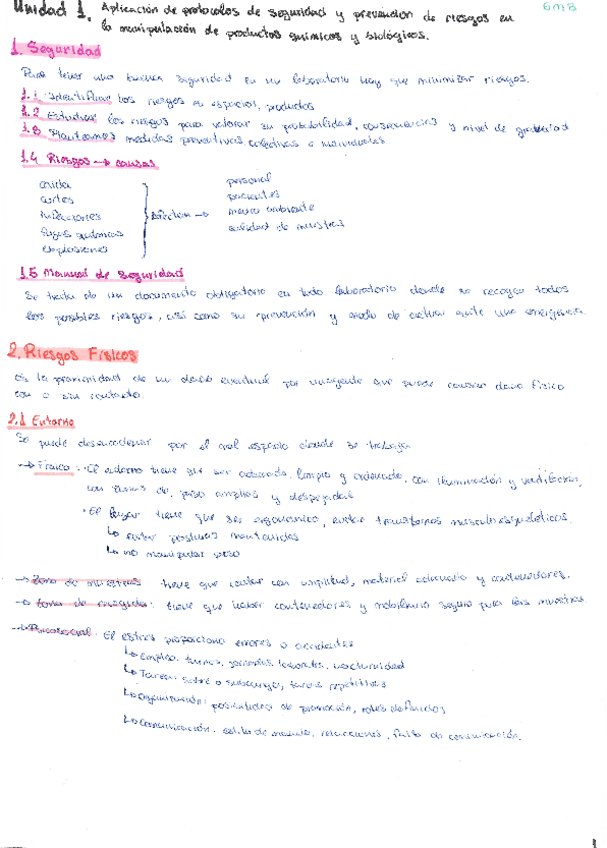 Unidad 1. Aplicación de protocolos de seguridad y prevención de riesgos en
la manipulación de productos químicos y biológicos.
GMB
1. Seguridad
Para tener una buena seguridad en un laboratorio hay que minimizar riesgos.
1.1 Identificar los riesgos en espacios, productos
1.2 Estudiar los riesgos para valorar su probabilidad, consecuencias y nivel de gravedad
1.3 Planteamos medidas preventivas colectivas o individuales
1.4 Riesgos → causas
caída
cortes
infecciones
fugas químicas
explosiones
Afectan →
personal
pacientes
medio ambiente
calidad de muestras
1.5 Manual de seguridad
Se trata de un documento obligatorio en todo laboratorio donde se recogen todos
los posibles riesgos, así como su prevención y modo de actuar ante una emergencia.
2. Riesgos Físicos
Es la proximidad de un daño eventual por un agente que puede causar daño físico
con o sin contacto.
2.1 Entorno
Se puede desencadenar por el mal espacio donde se trabaja
→ Físico: · El entorno tiene que ser adecuado, limpio y ordenado, con iluminación y ventilación,
con zonas de paso amplias y despejadas
· El lugar tiene que ser ergonómico, evitar transtornos musculoesqueléticos.
↳ evitar posturas mantenidas
↳ no manipular peso
→ Zona de muestras tiene que contar con amplitud, material adecuado y contenedores.
→ Zona de recogida: tiene que haber contenedores y mobiliario seguro para las muestras
→ Psicosocial: El estrés proporciona errores o accidentes
↳ Empleo: turnos, jornadas laborales, nocturnidad
↳ Tarea: sobre o subcarga, tareas repetitivas
↳ Organización: posibilidad de promoción, roles definidos
↳ Comunicación: estilo de mando, relaciones, falta de comunicación.
1